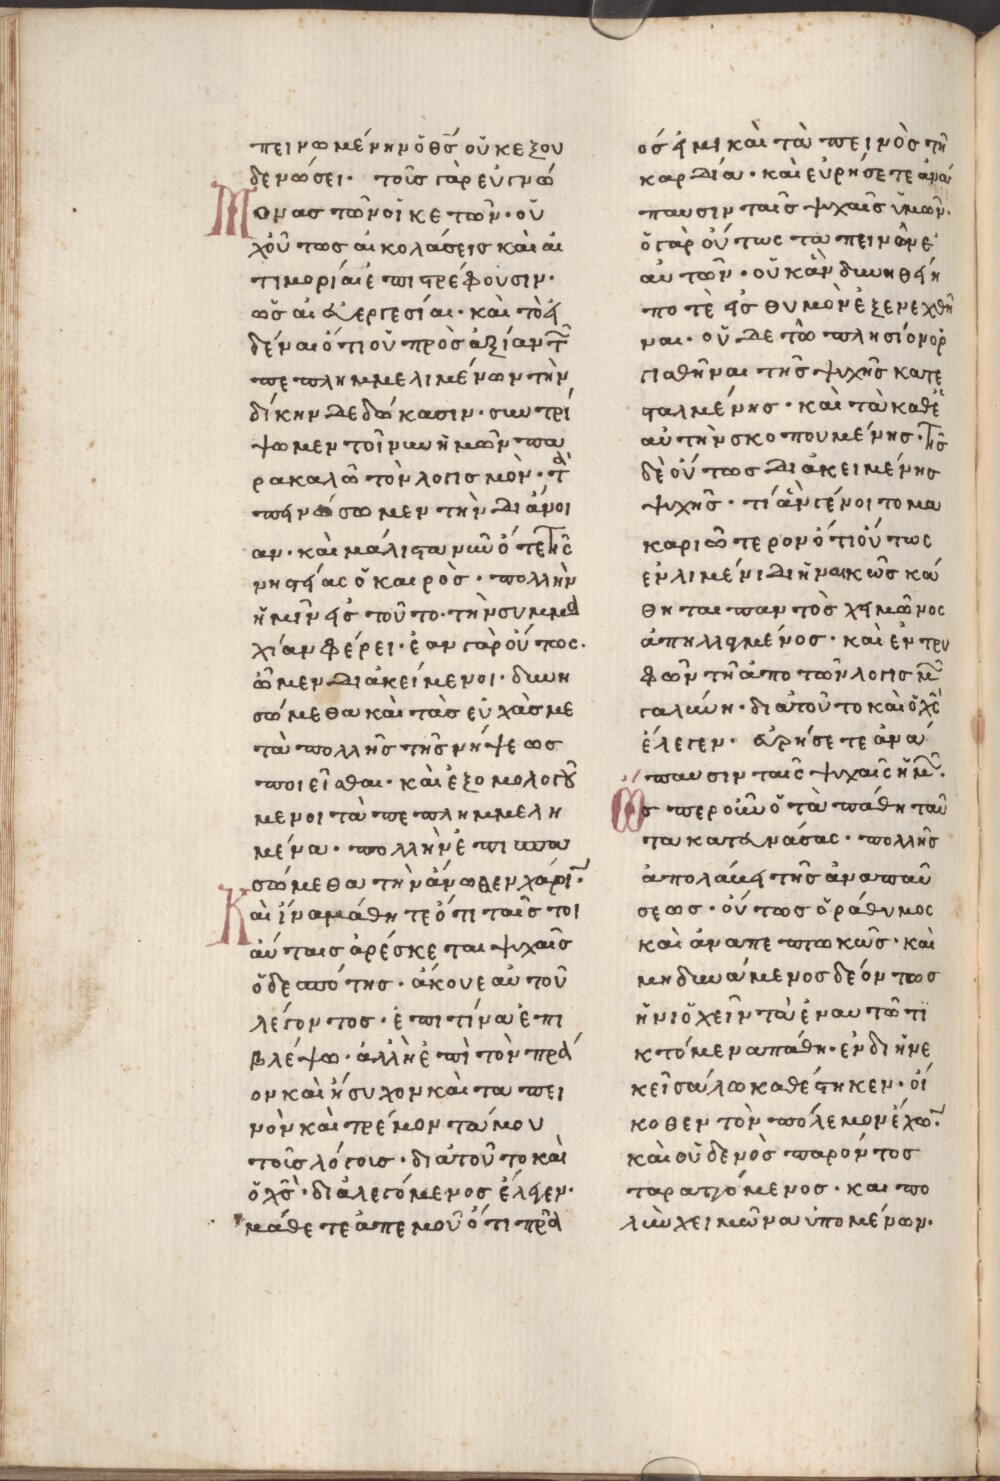 πεινωμένην ὁ θς οὐκ ἐξου
δενώσει· τοῖς γὰρ εὐγνώ
Μονας τῶν οἰκετῶν· οὐ
χ οὕτως αἱ κολάσεις καὶ αἱ
τιμορίαι ἐπιστρέφουσιν·
ὡς αἱ εὐεργεσίαι· καὶ τὸ εἰ
δέναι ὅτι οὐ πρὸς ἀξίαν τῶν
πεπλημμελιμένων τὴν
δίκην δεδώκασιν· συντρί
ψωμεν τοίνυν ἡμῶν πα
ρακαλῶ τὸν λογισμὸν· τα
πεινώσωμεν τὴν διάνοι
αν· καὶ μάλιστα νῦν ὅτε τῆς
νηστείας ὁ καιρὸς· πολλὴν
ἡμῖν εἰς τοῦτο· τὴν συμμα
χίαν φέρει· ἐαν γὰρ οὕτως·
ὦμεν διακείμενοι· δυνη
σώμεθα καὶ τὰς εὐχὰς με
τὰ πολλῆς τῆς νήψεως
ποιεῖσθαι· καὶ ἐξομολογού
μενοι τὰ πεπλημμελη
μένα· πολλὴν ἐπισπα
σώμεθα τὴν ἄνωθεν χάριν·
Καὶ ἵνα μάθητε ὅτι ταῖς τοι
αύταις ἀρέσκεται ψυχαῖς
ὁ δεσπότης· ἄκουε αὐτοῦ
λέγοντος· ἐπι τίνα ἐπι
βλέψω· ἀλλ' ἢ ἐπὶ τὸν πρᾶ
ον καὶ ἡσυχον καὶ ταπει
νὸν καὶ τρέμοντά μου
τοῖς λόγοις· διατοῦτο καὶ
ὁ χς· διαλεγόμενος ἔλεγεν·
μάθετε ἀπ' ἐμοῦ ὅτι πρᾶ
ός εἰμι καὶ ταπεινὸς τῆ
καρδία· καὶ εὑρήσετε ἀνά
παυσιν ταῖς ψυχαῖς ὑμῶν·
ὁ γὰρ οὕτως ταπεινῶν ἑ
αυτῶν· οὐκ ἂν δυνηθείη
ποτὲ εἰς θυμὸν ἐξενεχθῆ
ναι· οὐδὲ τῶ πλησίον ὀρ
γισθῆναι τῆς ψυχῆς κατε
σταλμένης· καὶ τὰ καθ' ἑ
αυτὴν σκοπουμένης· τῆς
δὲ οὕτως διακειμένης
ψυχῆς· τί ἂν γένοιτο μα
καριώτερον ὅτι οὕτως
ἐν λιμένι διηνεκῶς κά
θηται παντὸς χειμῶνος
ἀπηλλαγμένος· καὶ ἐντρυ
φῶν τῆ ἀπο τῶν λογισμῶν
γαλήνη· διατοῦτο καὶ ὁ χς
ἔλεγεν· εὑρήσετε ἀνά
παυσιν ταῖς ψυχαῖς ἡμῶν·
Ὥσπερ οὖν ὁ τὰ πάθη ταῦ
τα κατευνάσας· πολλῆς
ἀπολαύει τῆς ἀναπαύ
σεως· οὕτως ὁ ράθυμος
καὶ ἀναπεπτωκῶς· καὶ
μη δυνάμενος δεόντως
ἡνιοχεῖν τὰ ἐν αυτῶ τι
κτόμενα πάθη· ἐν διηνε
κεῖ σάλω καθέστηκεν· οἴ
κοθεν τὸν πόλεμον ἔχων·
καὶ οὐδενὸς παρόντος
ταραττόμενος· και πο
λὺν χειμῶνα ὑπομένων·